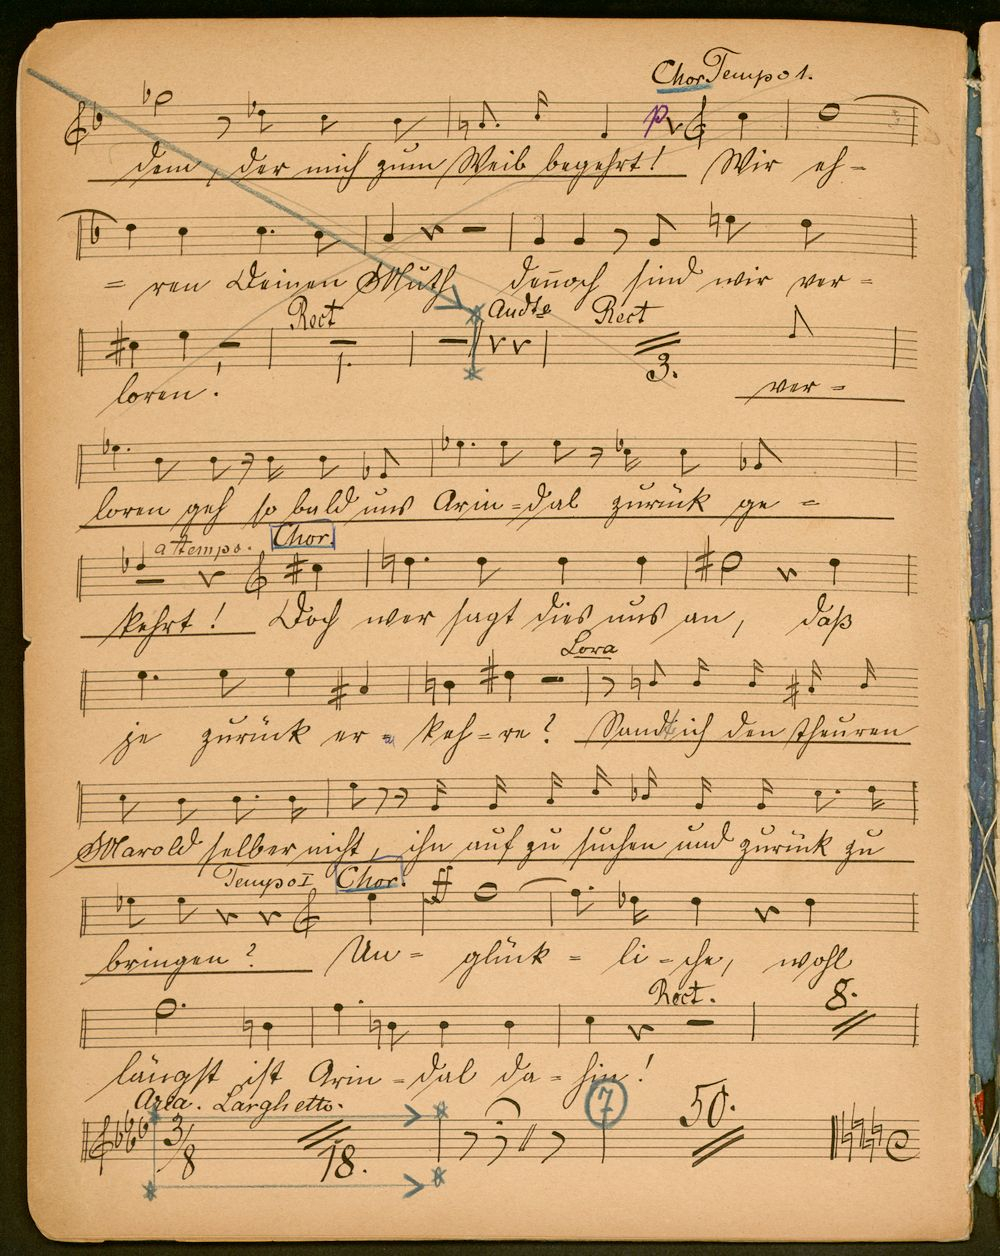 Chor Tempo 1.
p
dem, der mich zum Weib begehrt! Wir eh=
=ren Deinen Muth dennoch sind wir ver=
Rect Andte Rect
1. 3.
loren. ver=
loren geh so bald uns Arin=dal zurück ge=
a tempo. Chor.
kehrt! Doch wer sagt dies uns an, daß
Lora
je zurück er= keh=re? Sandt ich den theuren
Marold selber nicht, ihn auf zu suchen und zurück zu
Tempo I Chor.
ff
bringen? Un= glück= li=che, wohl
Rect. 8.
längst ist Arin=dal da=hin!
Aria. Larghetto. 7 50.
3/8 18.